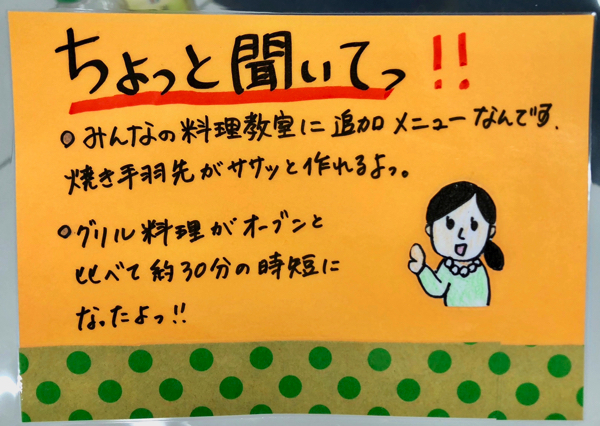 ちょっと聞いてっ!!
みんなの料理教室に追加メニューなんです.
焼き手羽先がササッと作れるよっ。
グリル料理がオーブンと
比べて約30分の時短に
なったよっ!!